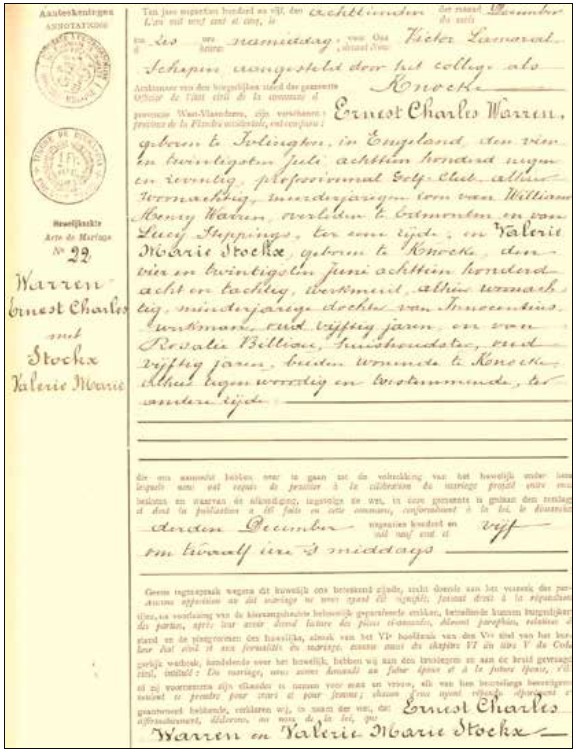 Aanteekeningen
ANNOTATIONS
Huwelijksakte
Acte de Mariage
Nº 22
Warren
Ernest Charles
met
Stockx
Valerie Marie
Ten jare negentien honderd en vijf, den achttienden der maand December
L'an mil neuf cent et cinq, le du mois
ten zes ure namiddag, voor Ons Victor Lamoral
Schepen aangesteld door het college als
Ambtenaar van den burgerlijken stand der gemeente Knocke
Officier de l'état civil de la commune d
provincie West-Vlaanderen, zijn verschenen: Ernest Charles Warren,
province de la Flandre occidentale, ont comparu:
geboren te Islington, in Engeland, den vier
en twintigsten Juli achttien honderd negen
en zeventig, professionnal Golf-Club, alhier
woonachtig, meerderjarigen zoon van William
Henry Warren, overleden te Edmonton en van
Lucy Steppings, ter eene zijde; en Valerie
Marie Stockx, geboren te Knocke, den
vier en twintigsten Juni achttien honderd
acht en tachtig, werkmeid, alhier woonach
tig, minderjarige dochter van Innocentius,
werkman, oud vijftig jaren, en van
Rosalie Billiau, huishoudster, oud
vijftig jaren, beiden wonende te Knocke,
alhier tegenwoordig en toestemmende, ter
andere zijde.
die ons aanzocht hebben over te gaan tot de voltrekking van het huwelijk onder hen
lesquels nous ont requis de procéder à la célébration du mariage projeté entre eux
besloten en waarvan de afkondiging, ingevolge de wet, in deze gemeente is gedaan den zondag
et dont la publication a été faite en cette commune, conformément à la loi, le dimanche
derden December negentien honderd en vijf
mil neuf cent et
om twaalf ure 's middags
Geene tegenspraak wegens dit huwelijk ons beteekend zijnde, recht doende aan het verzoek der par-
Aucune opposition au dit mariage ne nous ayant été signifiée, faisant droit à la réquisition
stand en de pleegvormen des huwelijks, alsmede van het VIe hoofdstuk van den Ven titel van het bur-
gerlijk wetboek, handelende over het huwelijk, hebben wij aan den bruidegom en aan de bruid gevraagd
civil, intitulé: Du mariage, nous avons demandé au futur époux et à la future épouse, s'ils
of zij voornemens zijn elkander te nemen voor man en vrouw, elk van hen beurtelings bevestigend
veulent se prendre pour mari et pour femme; chacun d'eux ayant répondu séparément et
geantwoord hebbende, verklaren wij, in naam der wet, dat Ernest Charles
affirmativement, déclarons, au nom de la loi, que
Warren en Valerie Marie Stockx